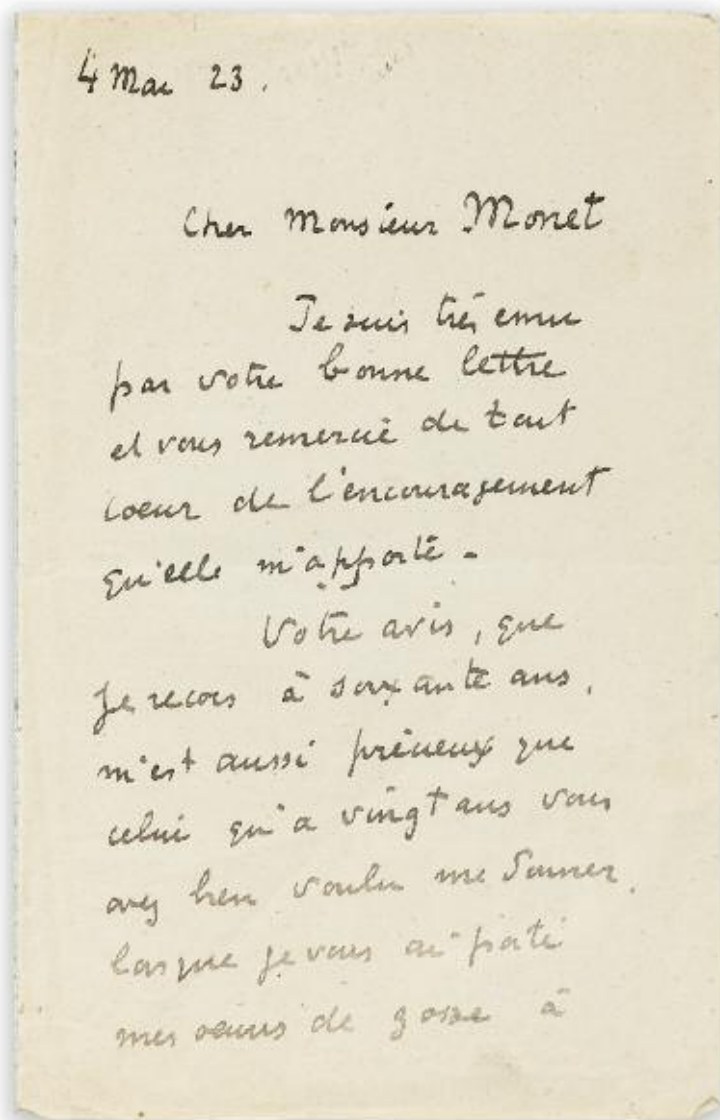 4 Mai 23.
Cher Monsieur Monet
Je suis très ému
par votre bonne lettre
et vous remercie de tout
coeur de l'encouragement
qu'elle m'apporte -
Votre avis, que
je recois à soixante ans,
m'est aussi précieux que
celui qu'a vingt ans vous
avez bien voulu me donner,
lorsque je vous ai porté
mes de gosse à